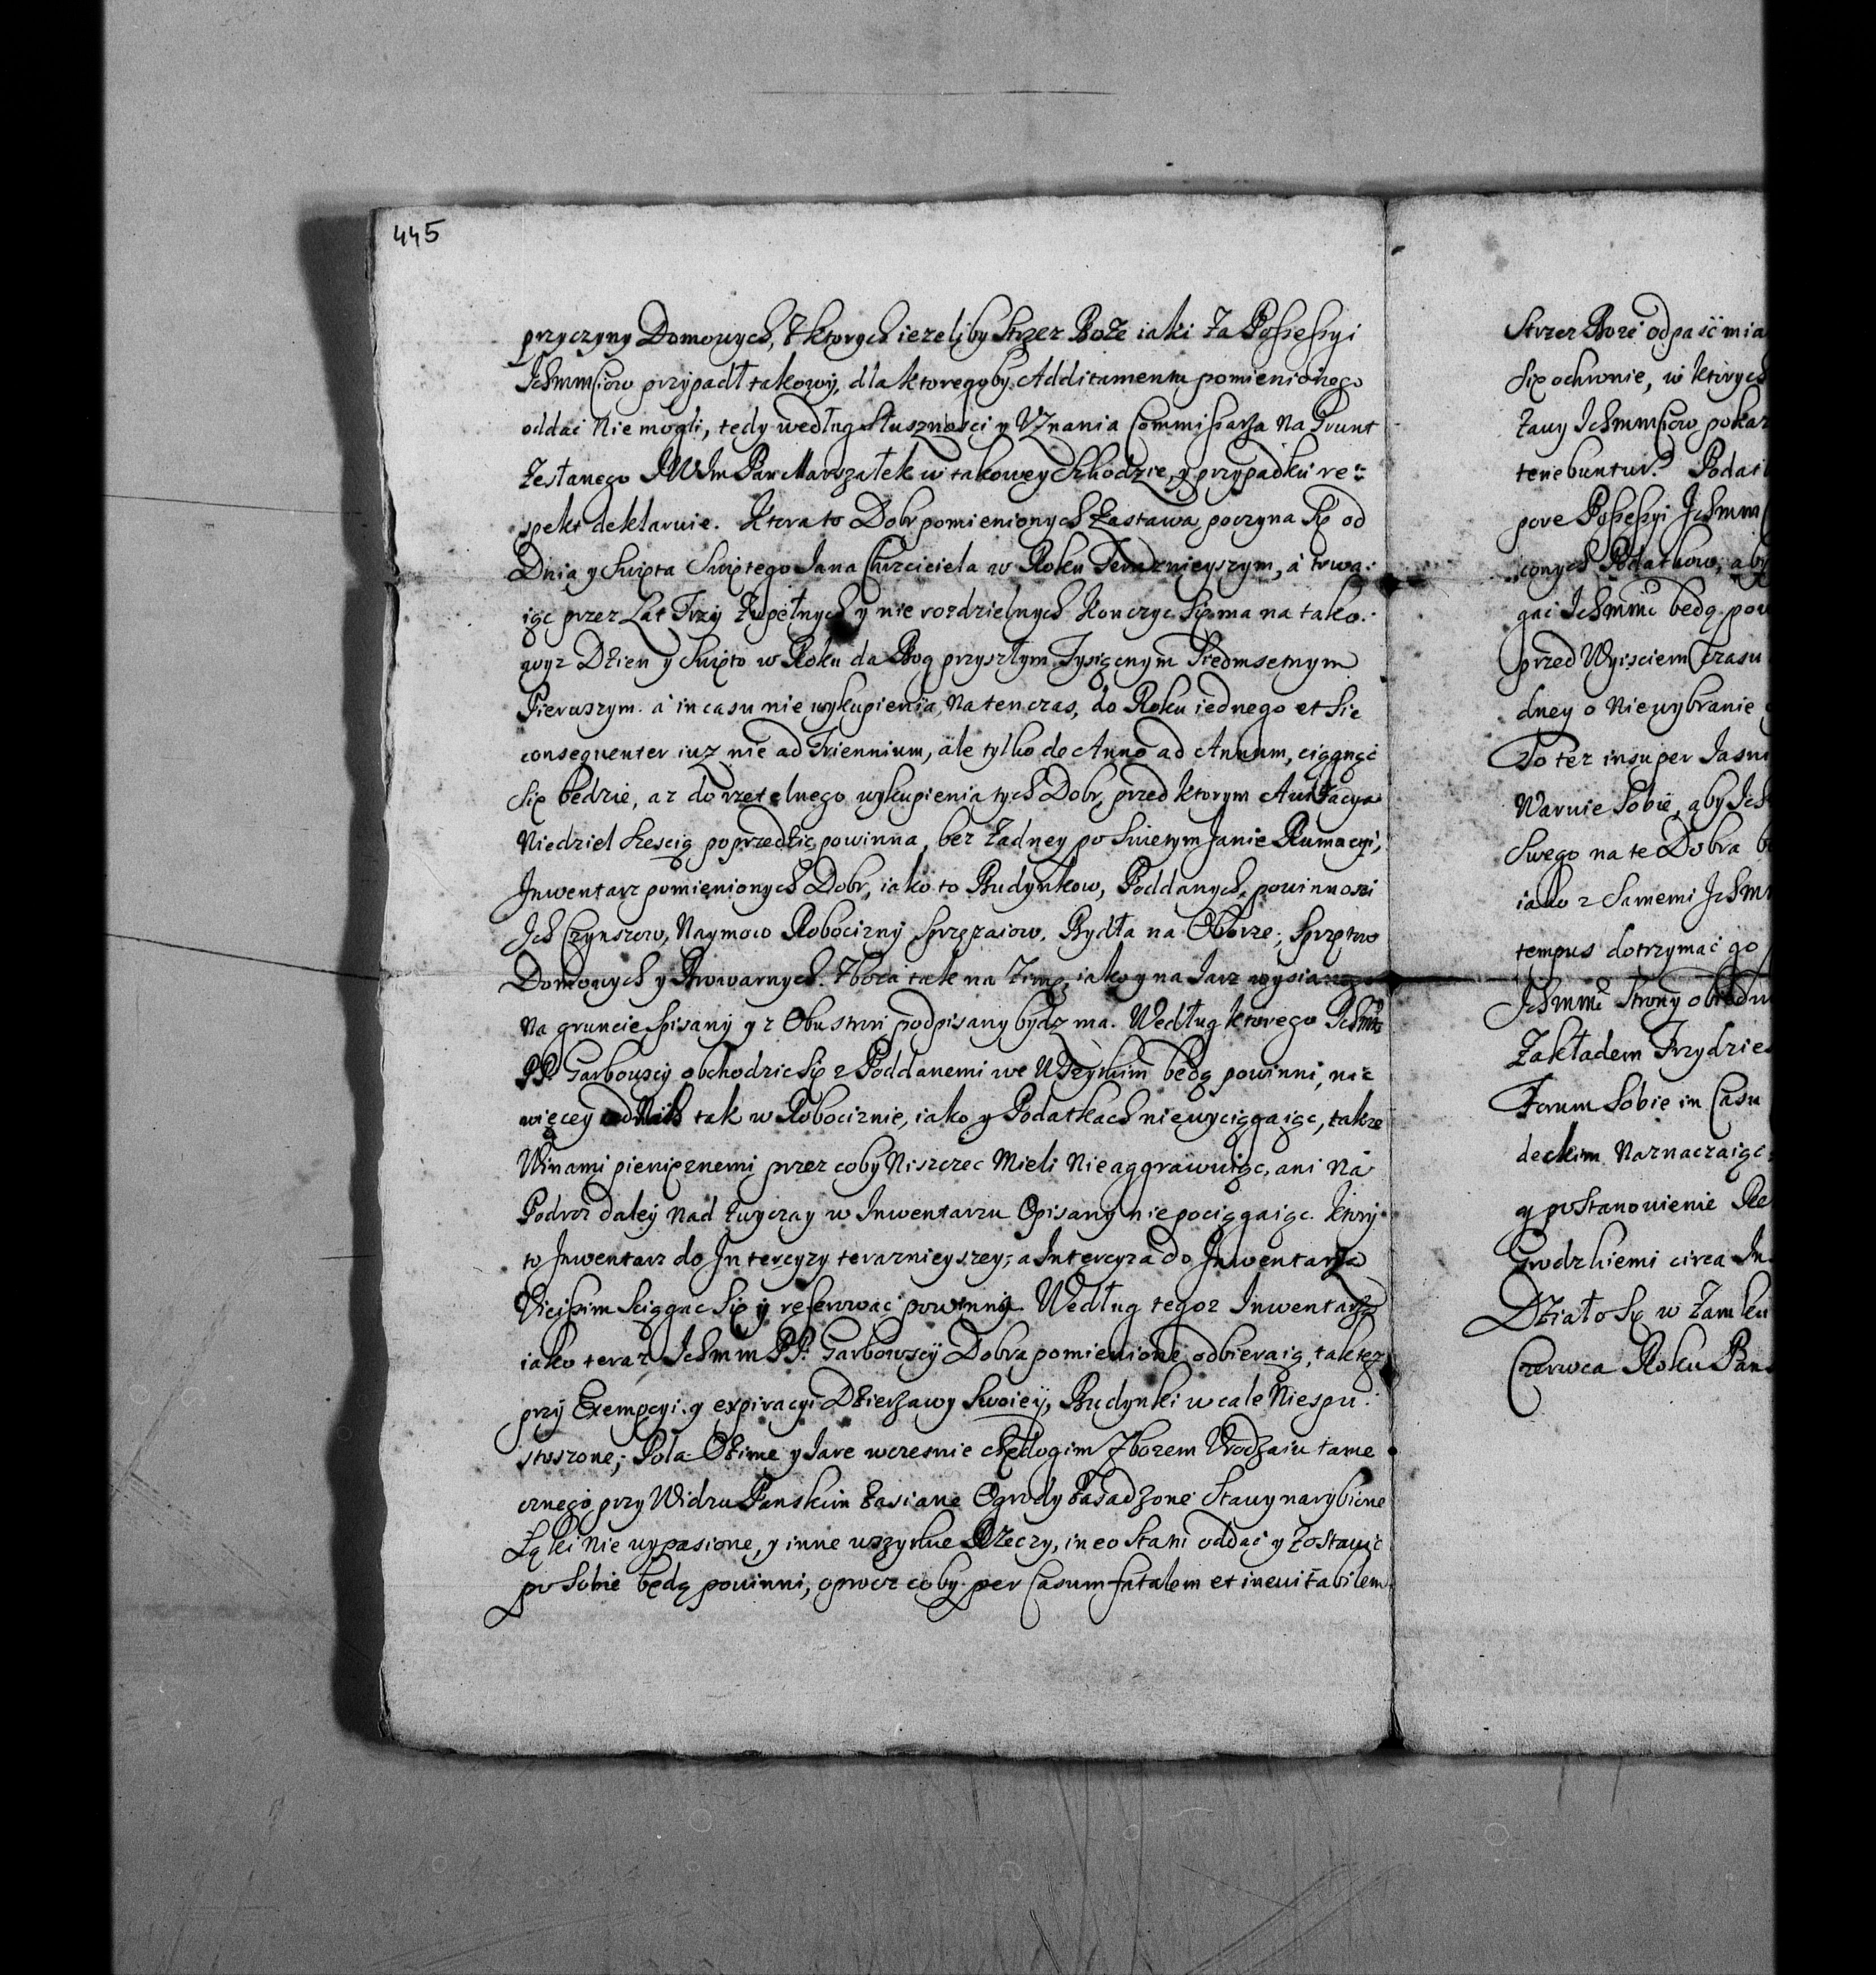 445
przyczyny Domowych, z ktorych iezeliby Strzez Boże iaki za Possessyi
Ichmmciow przypadł takowy, dla ktoregoby Additamentu pomienionego
oddać Nie mogli, tedy według Słuszności y Uznania Commissarza na Grunt
Zesłanego JWJm Pan Marszałek w takowey Szkodzie, y przypadku re-
spekt deklaruie. Ktora to Dobr pomienionych Zastawa poczyna Się od
Dnia y Swięta Swiętego Jana Chrzciciela w Roku Terazniejszym, à trwa-
iąc przez Lat Trzy Zupełnych y nie rozdzielnych Konczyc Się ma na tako-
wyz Dzien y Swięto w Roku da Bog przyszłym Tysiącnym Siedmsetnym
Pierwszym. à in casu nie wykupienia, na ten czas, do Roku iednego et sic
consequenter iuz nie ad Triennium, ale tylko de Anno ad Annum, ciągnąć
Się będzie, az do rzetelnego wykupienia tych Dobr, przed ktorym Awizacya
Niedziel Sześcią poprzedzic powinna, bez Zadney po Swietym Janie Rumacyi,
Inwentarz pomienionych Dobr, iako to Budynkow, Poddanych, powinnosci
Ich Czynszow, Naymow Robocizny Sprzęzaiow, Bydła na Oborze, Sprzętow
Domowych y Browarnych. Zboza tak na Zimę, iako y na Jarz wysianego
na gruncie Spisany y z Obu stron podpisany bydz ma. Według ktorego Ichmć
PP. Garbowscy obchodzic Się z Poddanemi we Wszytkim będą powinni, nic
więcey od Nich tak w Robociznie, iako y Podatkach nie wyciągaiąc, takze
Winami pieniężnemi przez coby Niszczec Mieli Nie aggrawuiąc, ani Na
Podroz daley nad Zwyczay w Inwentarzu Opisany nie pociągaiąc. Ktory
to Inwentarz do Intercyzy terazniejszey, a Intercyza do Inwentarza
Vicissim Sciągac Się y referowac powinny. Według tegoz Inwentarza
iako teraz Ichmm PP. Garbowscy Dobra pomienione odbieraią, tak tez
przy Exempcyi y expiracyi Dzierzawy Swoiey, Budynki wcale Niespu-
stoszone; Pola Ozime y Jare wczesnie chędogim Zbozem Urodzaiu tame
cznego przy Widzu Panskim Zasiane Ogrody Zasadzone Stawy narybione
Łąki nie wypasione, y inne wszytkie Rzeczy, in eo Statu oddać y Zostawić
po Sobie będą powinni, oprocz coby per Casum fatalem et inevitabilem
Strzez Boze odpaść mia
Się ochronie, w ktorych
Zawy Ichmmciow pokaz
tenebuntur. Podat
pore Possessyi Ichmm
conych Podatkow, aby
gac Ichmmć będą pow
przed Wyisciem Czasu
dney o Niewybranie
To tez insuper Jasni
Waruie Sobie, aby Ich
Swego na te Dobra
iako z Samemi Ichm
tempus dotrzymać go
Ichmmć Strony obiedw
Zakładem Trzydzies
Forum Sobie in Casu
deckim Naznaczaiąc
y postanowienie Rę
Grodzkiemi circa In
Działo Się w Zamku
Czerwca Roku Pans